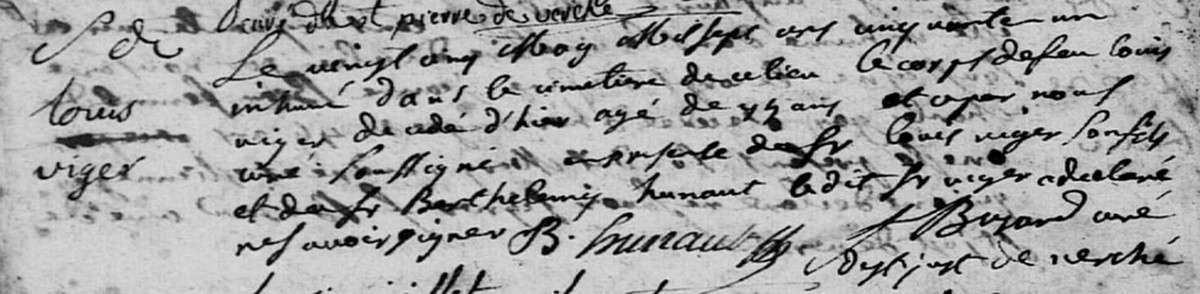 curé de st pierre de verché
S de
louis
viger
Le vingt cinq May Mil sept cens cinquante un
inhumé dans le cimetiere de ce lieu le corps de feu louis
viger decedé d'hier agé de ans et ce par nous
curé soussigné en presence de sr louis viger son fils
et de sr Barthelemy hunault ledit sr viger a declaré
ne savoir signer B. hunault
curé
de st just de verché